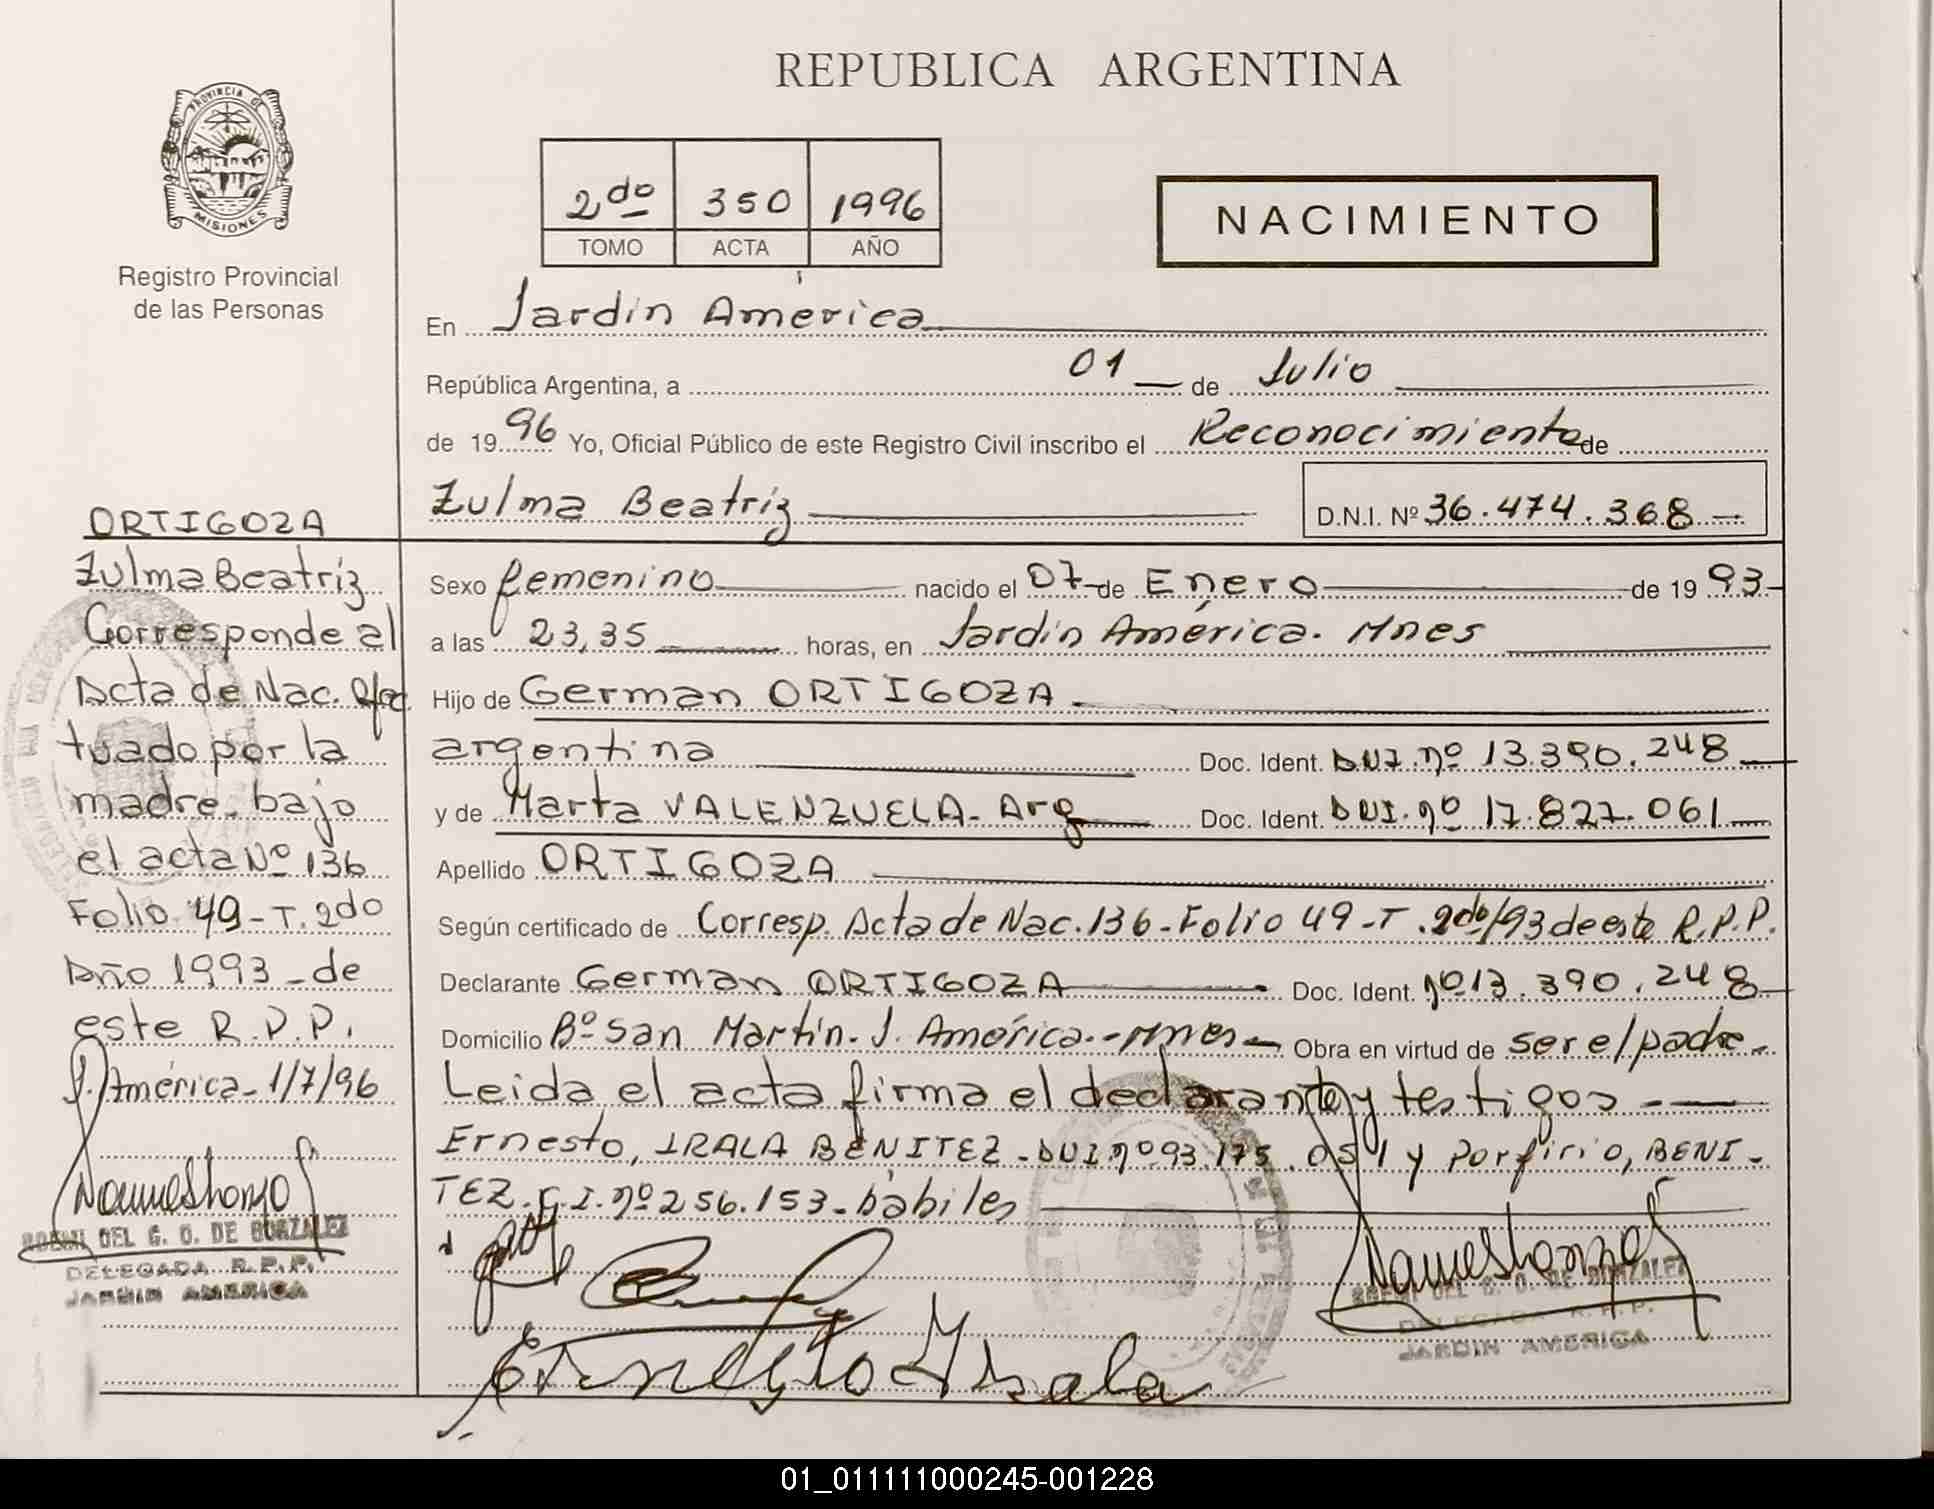 REPUBLICA ARGENTINA
PROVINCIA DE
MISIONES
Registro Provincial
de las Personas
2do 350 1996
TOMO ACTA AÑO
NACIMIENTO
En Jardin América
República Argentina, a 01 de Julio
de 1996 Yo, Oficial Público de este Registro Civil inscribo el Reconocimiento de
Zulma Beatriz D.N.I. Nº 36.474.368
Sexo femenino nacido el 07 de Enero de 1993
a las 23,35 horas, en Jardin América. Mnes
Hijo de German ORTIGOZA
argentina Doc. Ident. DNI. nº 13.390.248
y de Marta VALENZUELA - Arg Doc. Ident. DNI. nº 17.827.061
Apellido ORTIGOZA
Según certificado de Corresp. Acta de Nac. 136 - Folio 49 - T. 2do/93 de este R.P.P.
Declarante German ORTIGOZA Doc. Ident. nº 13.390.248
Domicilio Bº San Martín. J. América. - Mnes - Obra en virtud de ser el padre -
Leida el acta firma el declarante y testigos
Ernesto, IRALA BENITEZ - DNI nº 93.175.051 y Porfirio, BENI-
TEZ. C.I. nº 256.153 - hábiles
Ernesto Irala
DEL G. O. DE GONZALEZ
DELEGADA R.P.P.
JARDIN AMERICA
ORTIGOZA
Zulma Beatriz
Corresponde al
Acta de Nac. efec
tuado por la
madre - bajo
el acta Nº 136
Folio 49 - T. 2do
Año 1993 - de
este R.P.P.
J. América - 1/7/96
DEL G. O. DE GONZALEZ
DELEGADA R.P.P.
JARDIN AMERICA
01_011111000245-001228